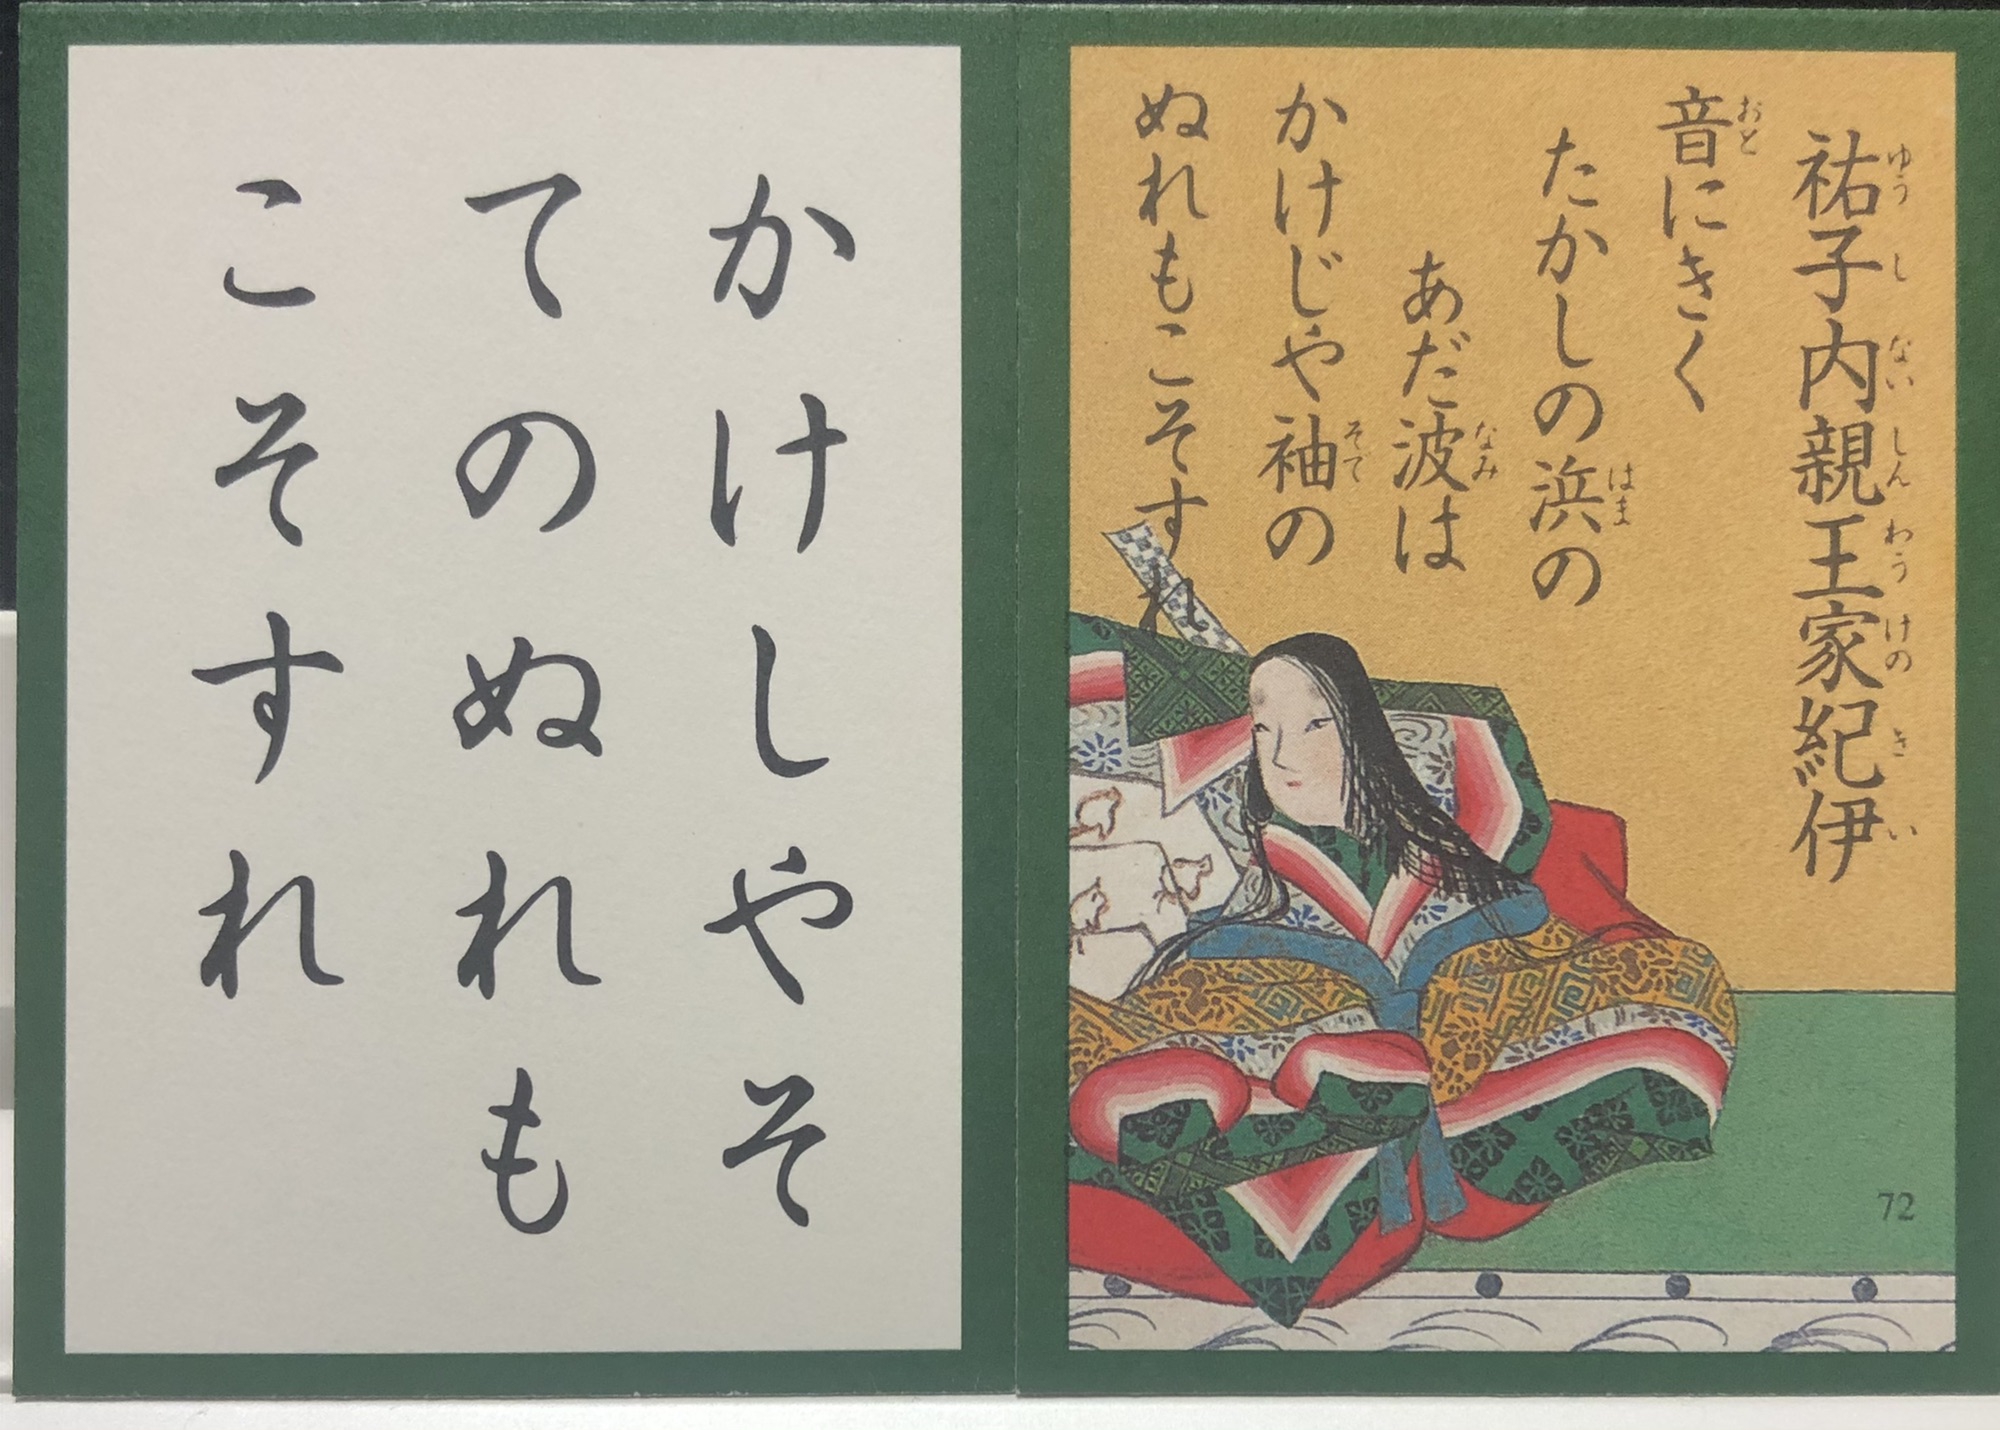 祐子内親王家紀伊
ゆうしないしんわうけのきい
音にきく
おと
たかしの浜の
はま
あだ波は
なみ
かけじや袖の
そで
ぬれもこそすれ
72
かけしやそ
てのぬれも
こそすれ